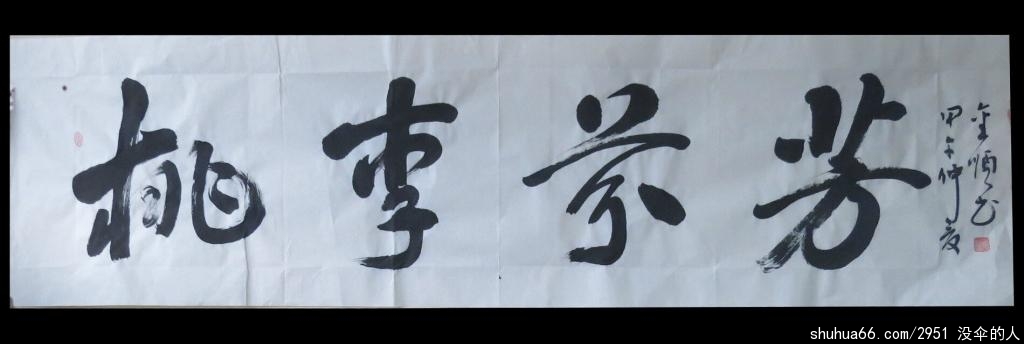 桃李芬芳
甲午仲夏
金顺书
shuhua66.com/2951 没伞的人